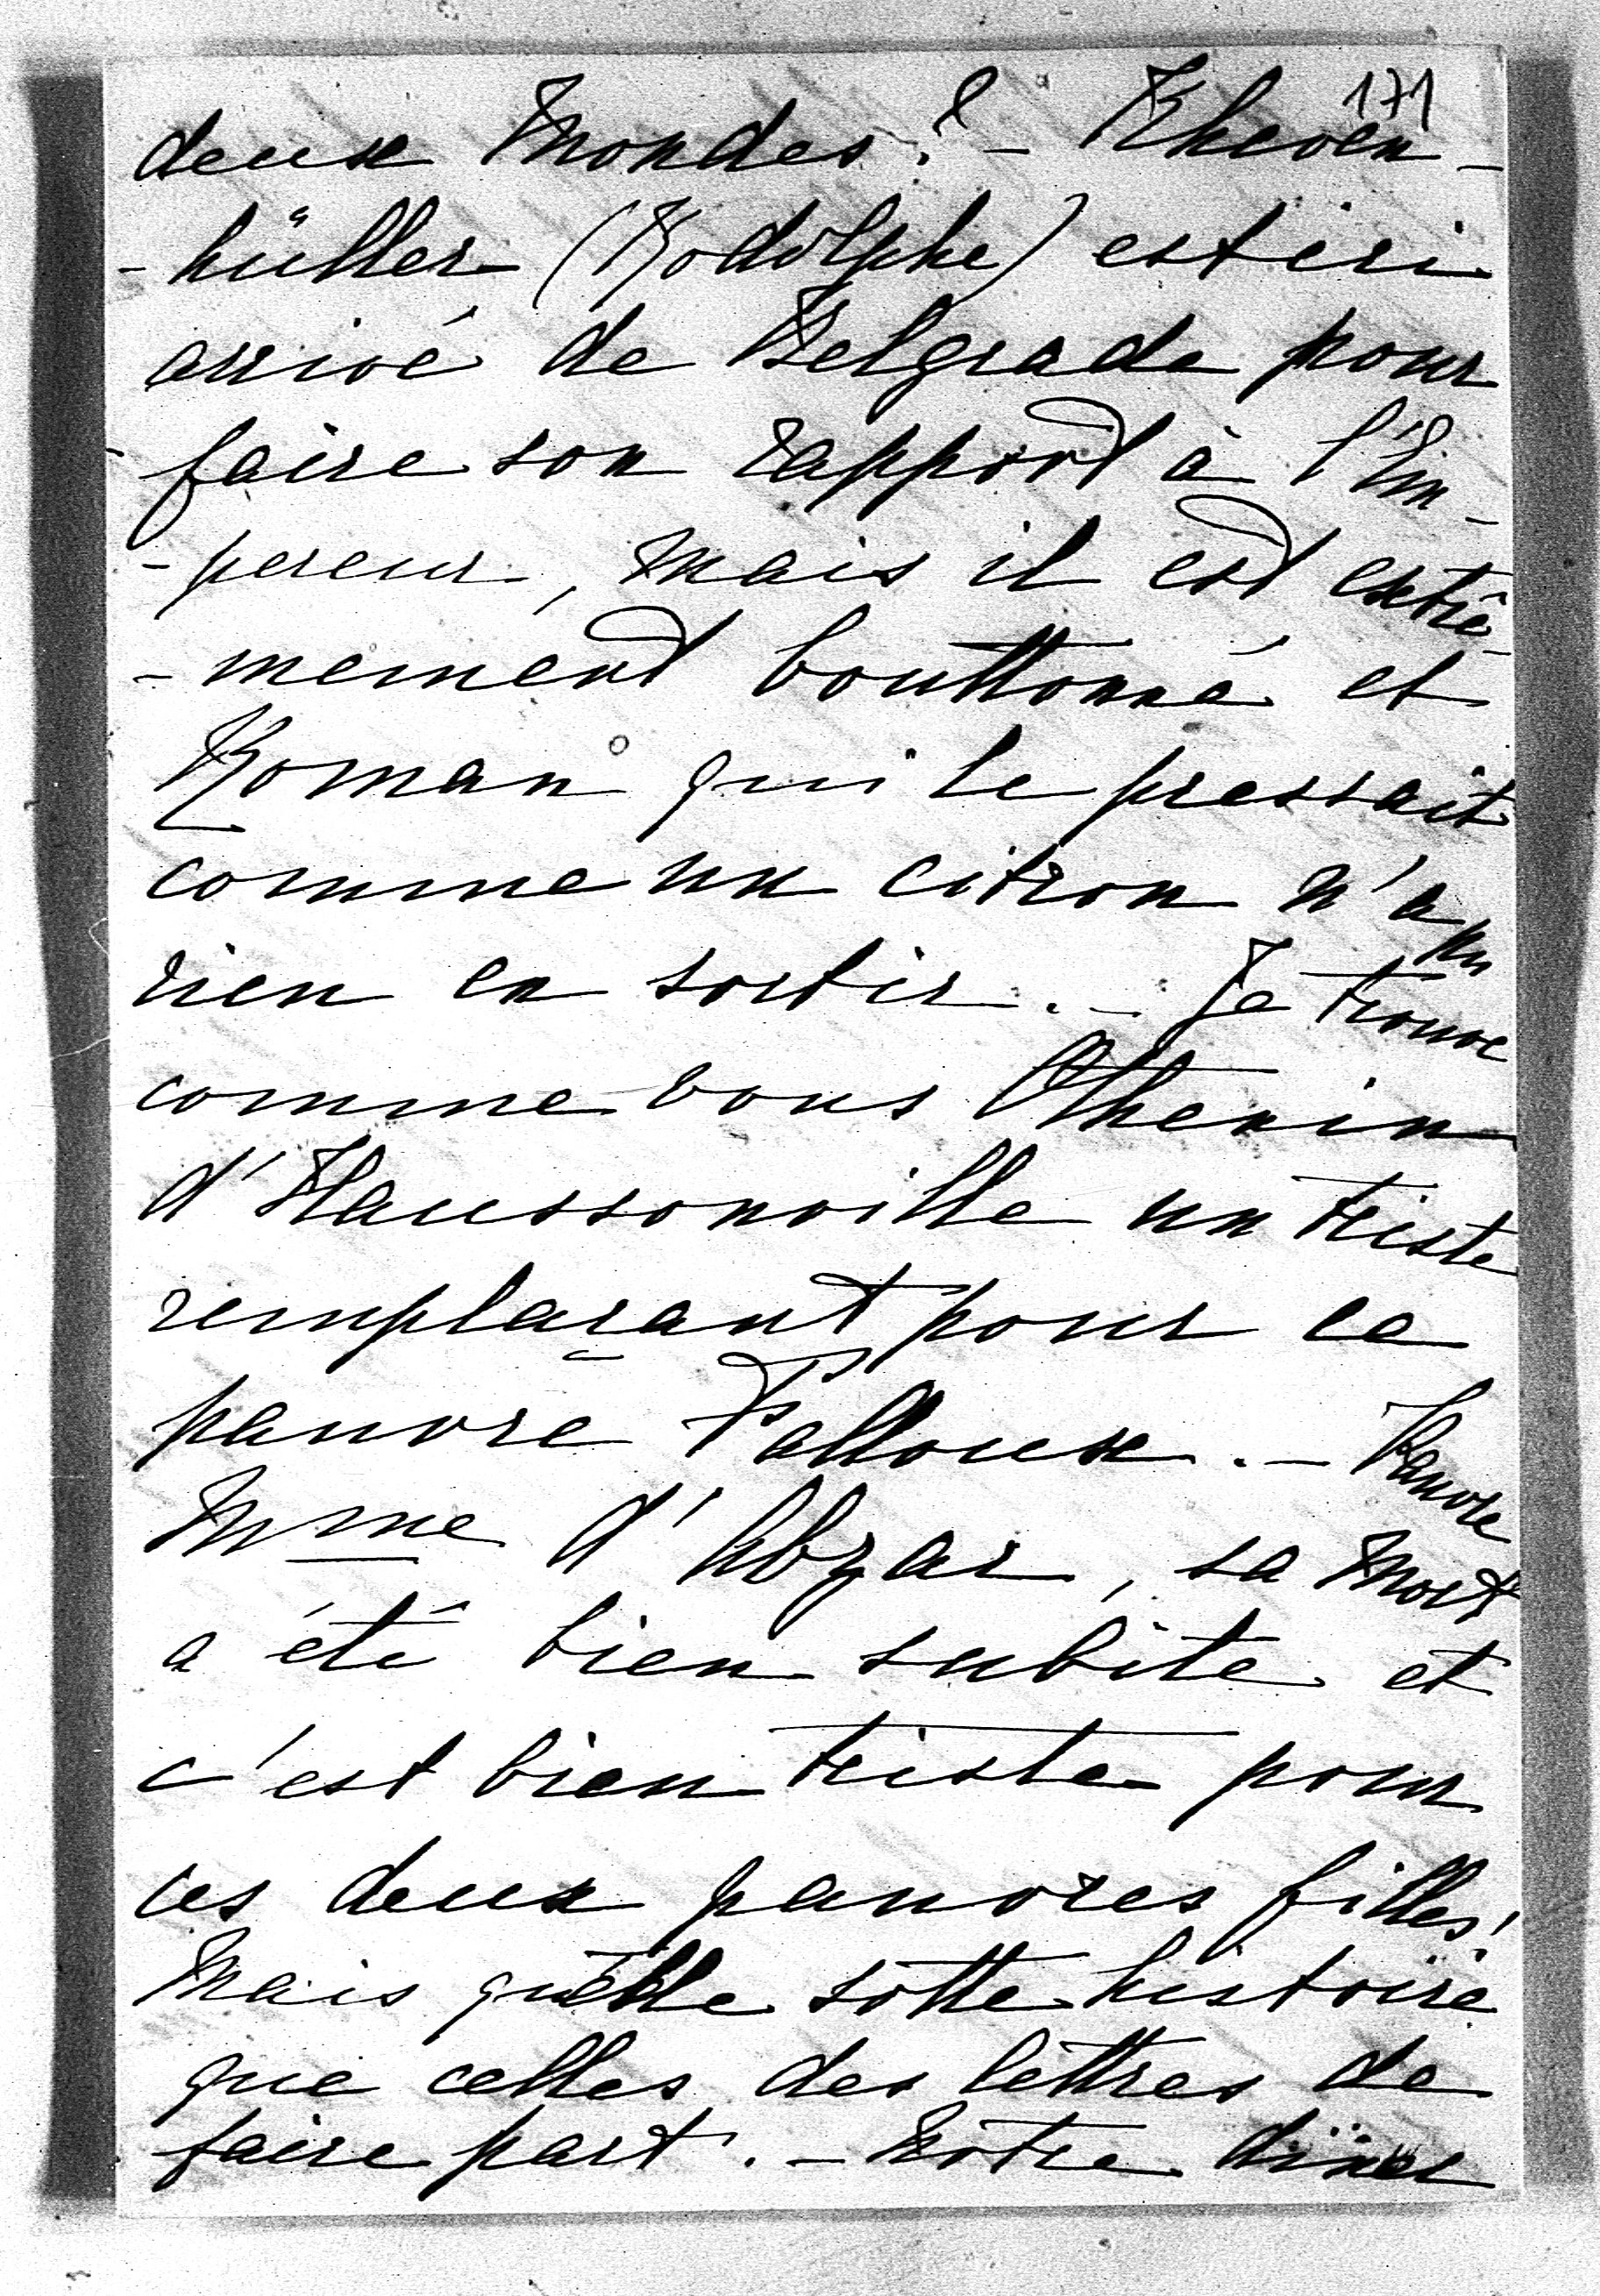 171
deux Mondes? – Kheven-
-hüller (Rodolphe) est ici
arrivé de Belgrade pour
faire son rapport à l'Em-
-pereur, mais il est extrê-
-mement bouttonné et
Roman qui le pressait
comme un citron n'a pu
rien en sortir. – Je trouve
comme vous Othenin
d'Haussonville un triste
remplaçant pour ce
pauvre Falloux. – Pauvre
Mme d'Abzac, sa mort
a été bien subite et
c'est bien triste pour
ces deux pauvres filles!
Mais quelle sotte histoire
que celles des lettres de
faire part. – Notre dîner